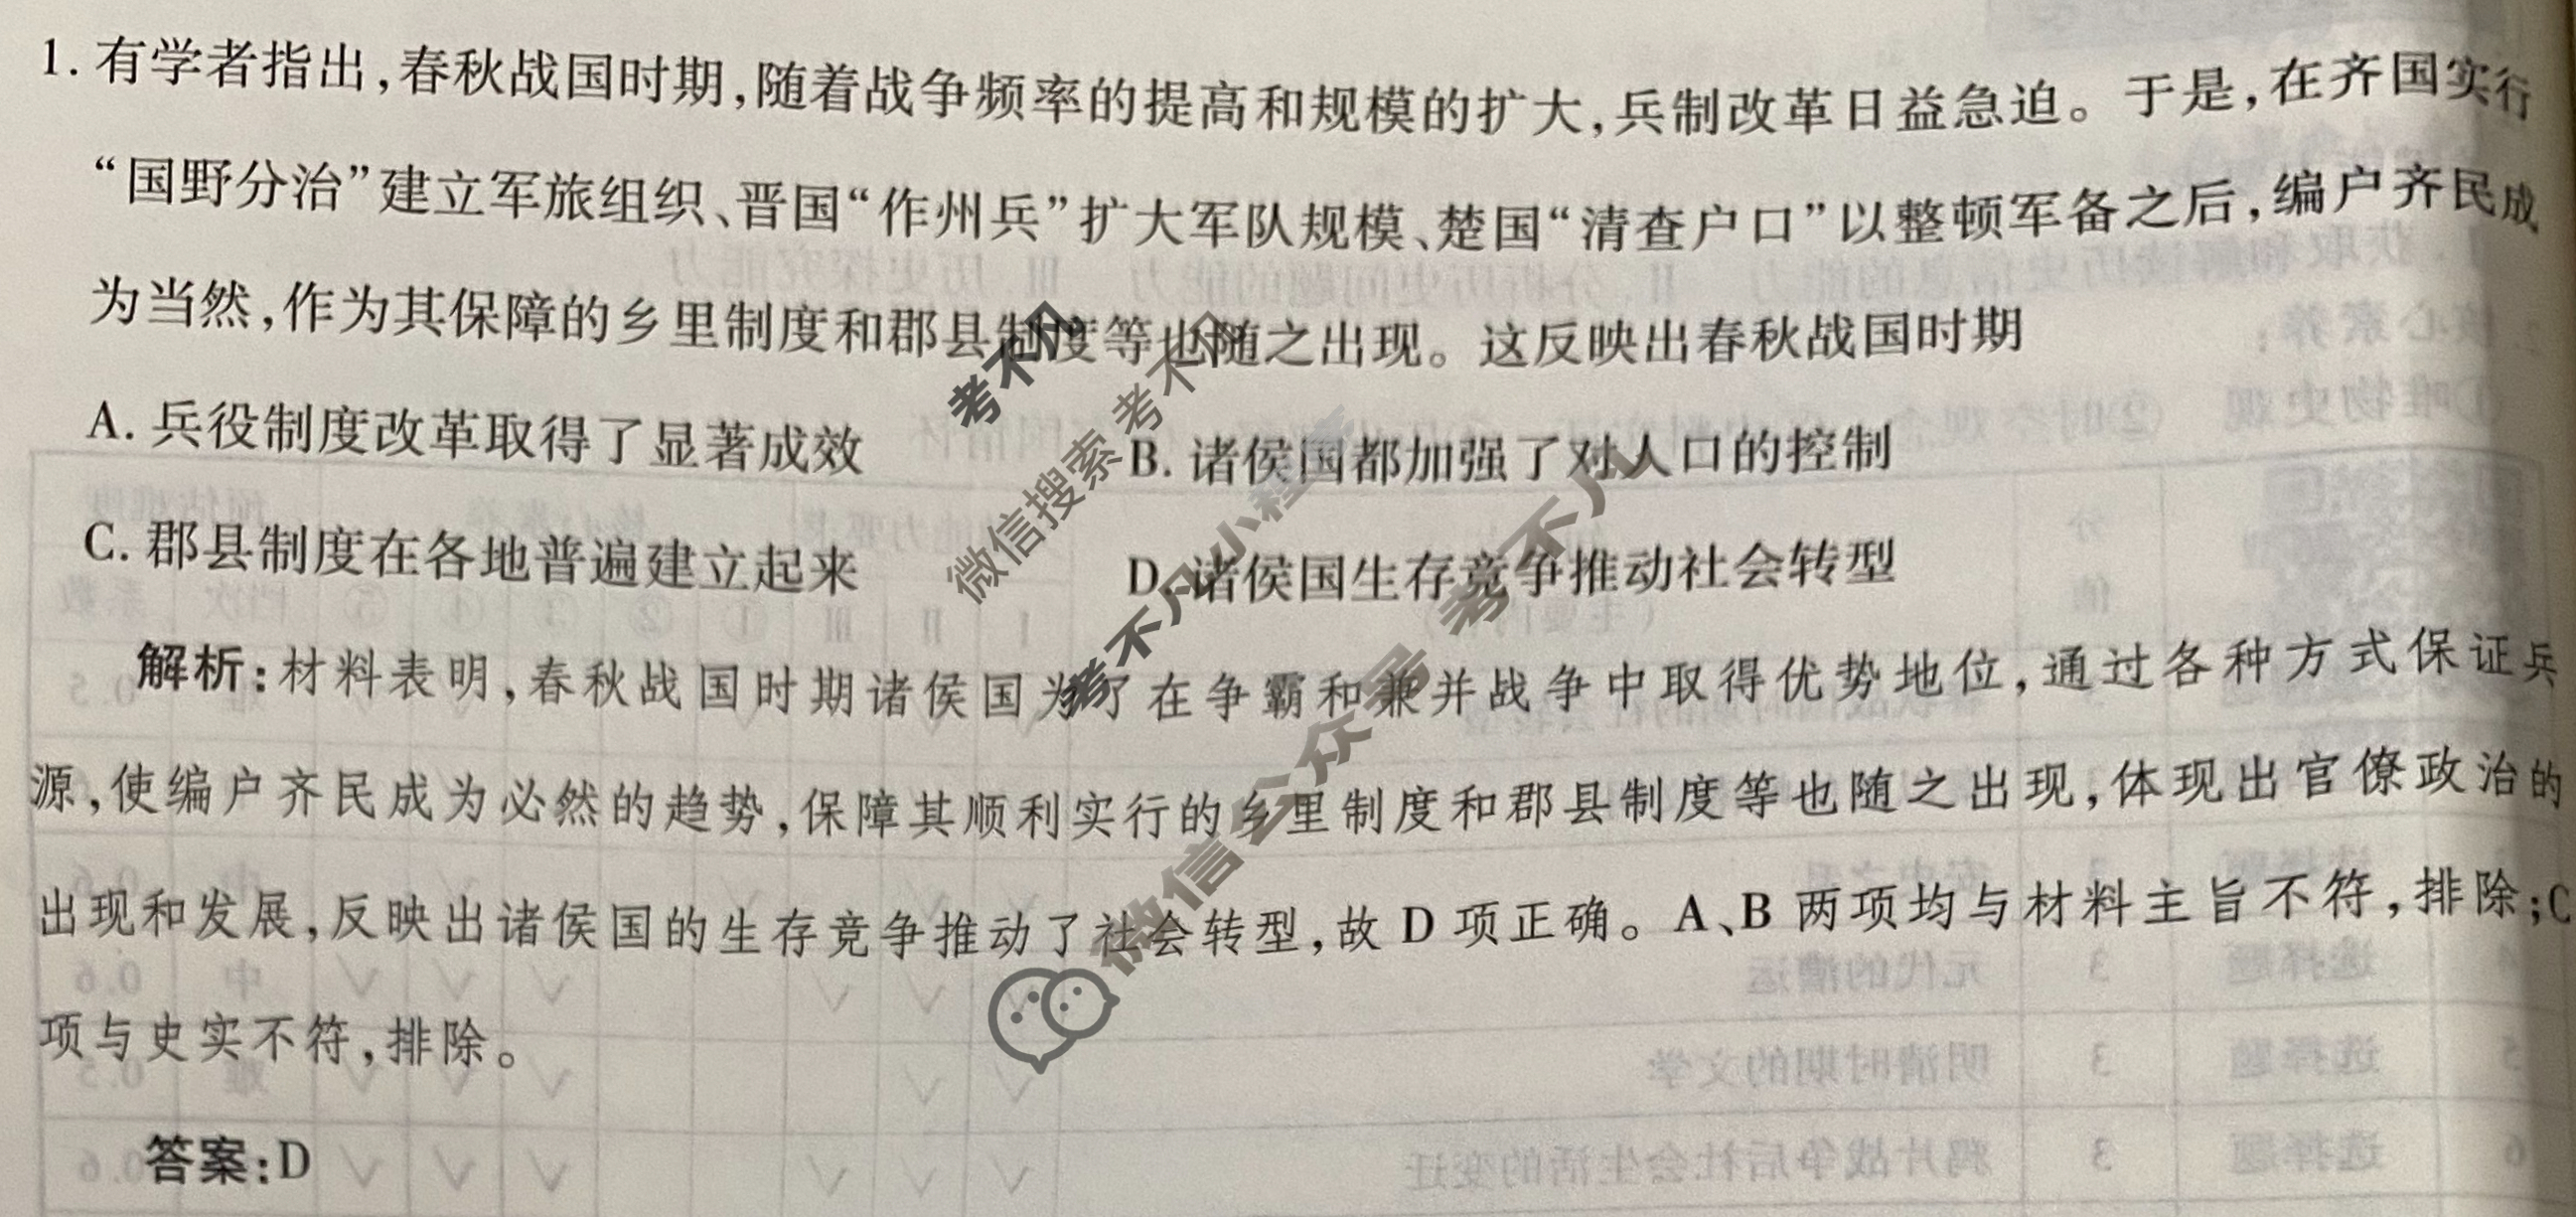 1. 有学者指出,春秋战国时期,随着战争频率的提高和规模的扩大,兵制改革日益急迫。于是,在齐国实行
“国野分治”建立军旅组织、晋国“作州兵”扩大军队规模、楚国“清查户口”以整顿军备之后,编户齐民成
为当然,作为其保障的乡里制度和郡县制度等也随之出现。这反映出春秋战国时期
A. 兵役制度改革取得了显著成效 B. 诸侯国都加强了对人口的控制
C. 郡县制度在各地普遍建立起来 D. 诸侯国生存竞争推动社会转型
解析:材料表明,春秋战国时期诸侯国为了在争霸和兼并战争中取得优势地位,通过各种方式保证兵
源,使编户齐民成为必然的趋势,保障其顺利实行的乡里制度和郡县制度等也随之出现,体现出官僚政治的
出现和发展,反映出诸侯国的生存竞争推动了社会转型,故 D 项正确。A、B 两项均与材料主旨不符,排除;C
项与史实不符,排除。
答案:D
考不凡
微信搜索 考不凡
考不凡小程序
微信公众号 考不凡